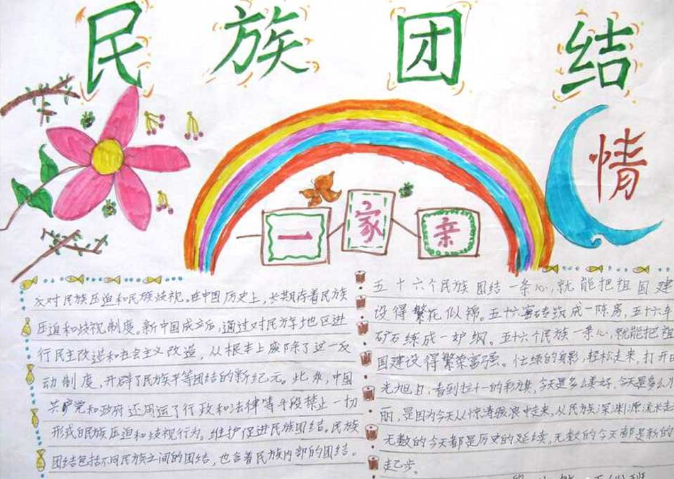 民族团结
情
一家亲
反对民族压迫和民族歧视。在中国历史上,长期存着民族
压迫和歧视制度。新中国成立后,通过对民族地区进
行民主改造和社会主义改造,从根本上废除了这一反
动制度,开辟了民族平等团结的新纪元。此来,中国
共产党和政府还用运了行政和法律等手段禁止一切
形式的民族压迫和歧视行为。维护促进民族团结。民族
团结包括不同民族之间的团结,也含着民族内部的团结。
五十六个民族团结一条心,就能把祖国建
设得繁花似锦。五十六砖砖成一陈房,五十六车
矿石练成一炉钢。五十六个民族一条心,就能把祖
国建设得繁荣富强。 轻松走来,打开日
看到红十一的彩旗,今天是多么美好,今天是多么
丽,是因为今天从惊涛骇浪中走来,从民族深渊源流
无数的今天都是历史的延续,无数的今天都是新的
起步。